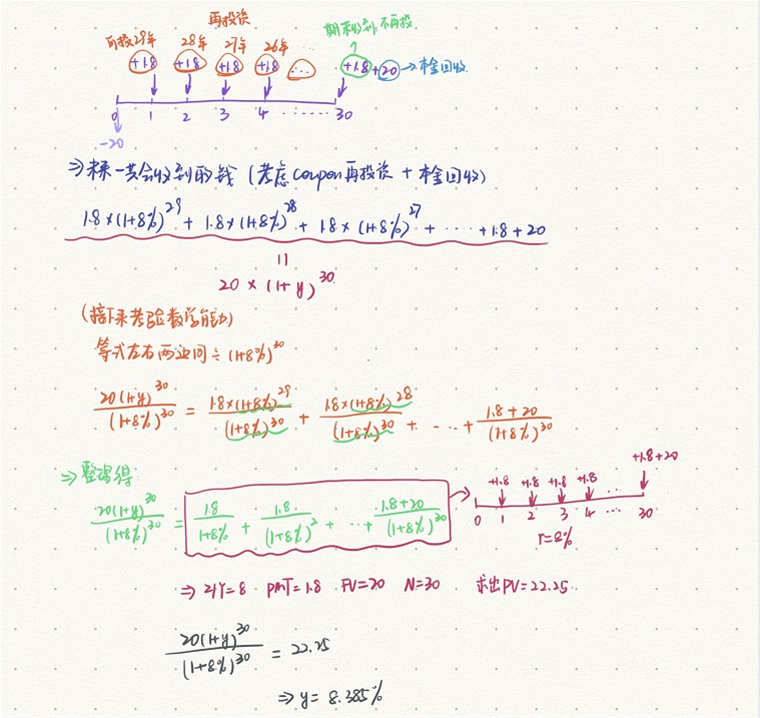 再投资
再投29年 28年 27年 26年 ... 期末收到,不再投
+1.8 +1.8 +1.8 +1.8 ... +1.8 +20 → 本金回收
0 1 2 3 4 ...... 30
-20
⇒ 未来一共会收到的钱 (考虑coupon再投资 + 本金回收)
1.8×(1+8%)^29 + 1.8×(1+8%)^28 + 1.8×(1+8%)^27 + ... + 1.8 + 20
=
20×(1+y)^30
(接下来考验数学能力)
等式左右两边同÷(1+8%)^30
20(1+y)^30/(1+8%)^30 = 1.8×(1+8%)^29/(1+8%)^30 + 1.8×(1+8%)^28/(1+8%)^30 + ... + 1.8+20/(1+8%)^30
⇒ 整理得:
20(1+y)^30/(1+8%)^30 = 1.8/1+8% + 1.8/(1+8%)^2 + ... + 1.8+20/(1+8%)^30
+1.8 +1.8 +1.8 +1.8 ... +1.8+20
0 1 2 3 4 ... 30
r=8%
⇒ I/Y=8 PMT=1.8 FV=20 N=30 求出PV=22.25
20(1+y)^30/(1+8%)^30 = 22.25
⇒ y = 8.385%